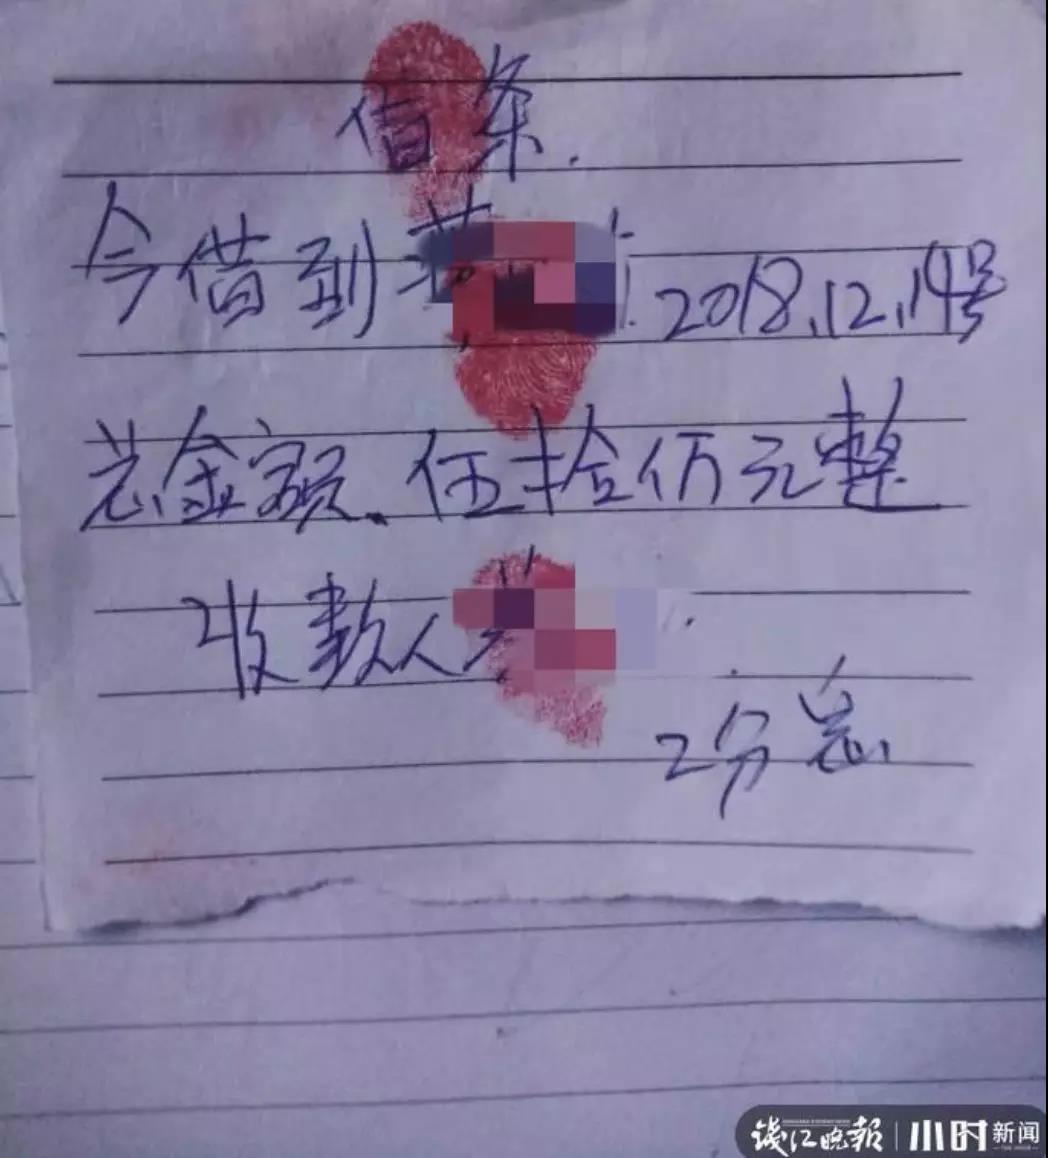 借条.
今借到 2018.12.14号
总金额、伍拾仟万元整
收款人
2分息
钱江晚报 | 小时新闻